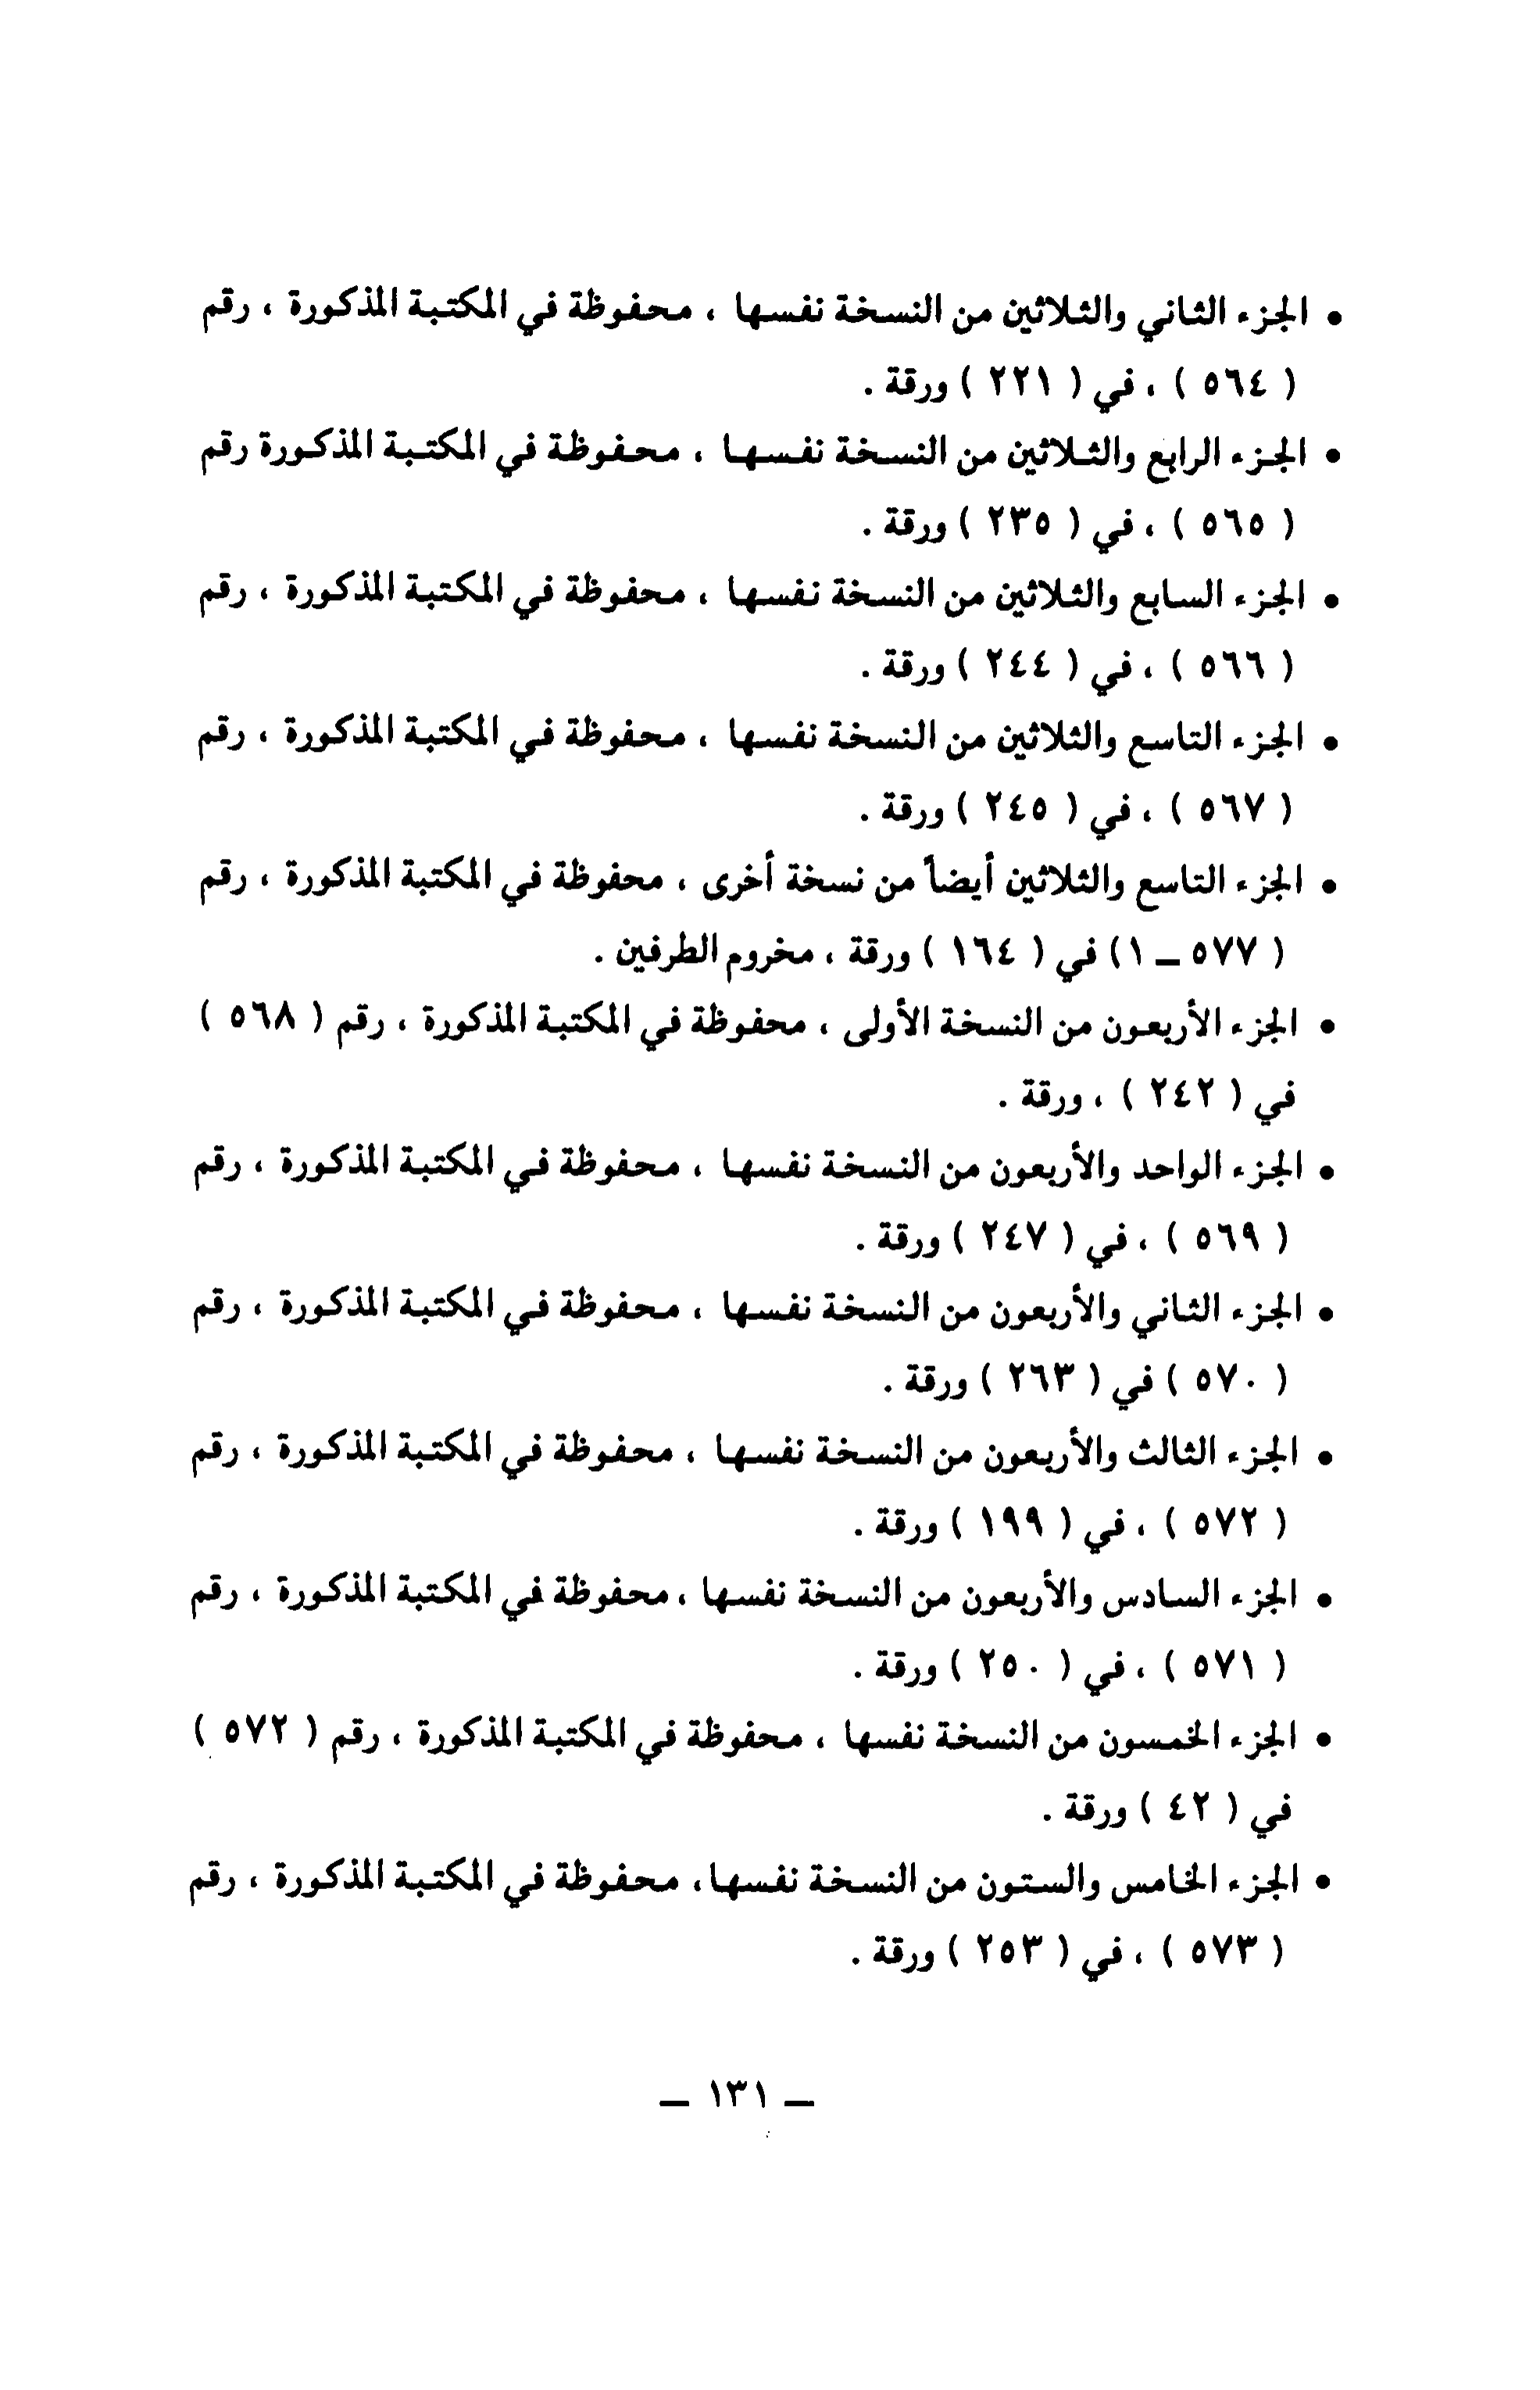 • الجزء الثاني والثلاثين من النسخة نفسها ، محفوظة في المكتبة المذكورة ، رقم
( ٥٦٤ ) ، في ( ٢٢١ ) ورقة .
• الجزء الرابع والثلاثين من النسخة نفسها ، محفوظة في المكتبة المذكورة رقم
( ٥٦٥ ) ، في ( ٢٣٥ ) ورقة .
• الجزء السابع والثلاثين من النسخة نفسها ، محفوظة في المكتبة المذكورة ، رقم
( ٥٦٦ ) ، في ( ٢٤٤ ) ورقة .
• الجزء التاسع والثلاثين من النسخة نفسها ، محفوظة في المكتبة المذكورة ، رقم
( ٥٦٧ ) ، في ( ٢٤٥ ) ورقة .
• الجزء التاسع والثلاثين أيضاً من نسخة أخرى ، محفوظة في المكتبة المذكورة ، رقم
( ٥٧٧ – ١) في ( ١٦٤ ) ورقة ، مخروم الطرفين .
• الجزء الأربعون من النسخة الأولى ، محفوظة في المكتبة المذكورة ، رقم ( ٥٦٨ )
في ( ٢٤٢ ) ، ورقة .
• الجزء الواحد والأربعون من النسخة نفسها ، محفوظة في المكتبة المذكورة ، رقم
( ٥٦٩ ) ، في ( ٢٤٧ ) ورقة .
• الجزء الثاني والأربعون من النسخة نفسها ، محفوظة في المكتبة المذكورة ، رقم
( ٥٧٠ ) في ( ٢٦٣ ) ورقة .
• الجزء الثالث والأربعون من النسخة نفسها ، محفوظة في المكتبة المذكورة ، رقم
( ٥٧٢ ) ، في ( ١٩٩ ) ورقة .
• الجزء السادس والأربعون من النسخة نفسها ، محفوظة في المكتبة المذكورة ، رقم
( ٥٧١ ) ، في ( ٢٥٠ ) ورقة .
• الجزء الخمسون من النسخة نفسها ، محفوظة في المكتبة المذكورة ، رقم ( ٥٧٢ )
في ( ٤٢ ) ورقة .
• الجزء الخامس والستون من النسخة نفسها، محفوظة في المكتبة المذكورة ، رقم
( ٥٧٣ ) ، في ( ٢٥٣ ) ورقة .
– ١٣١ –